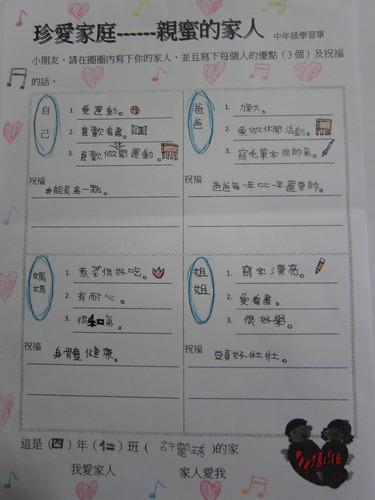 珍愛家庭------親蜜的家人 中年級學習單
小朋友，請在圈圈內寫下你的家人，並且寫下每個人的優點（3個）及祝福
的話。
自己
1. 愛運動。
2. 喜歡看書。
3. 喜歡做閒運動。
祝福
能長高一點。
爸爸
1. 偉大。
2. 愛做休閒活動。
3. 寫毛筆字很帥氣。
祝福
爸爸每一年比一年還要帥。
媽媽
1. 煮菜很好吃。
2. 有耐心。
3. 很和氣。
祝福
身體健康。
姐姐
1. 寫字漂亮。
2. 愛看書。
3. 很好學。
祝福
頭好壯壯。
這是（四）年（仁）班（ 許 ）的家
我愛家人 家人愛我